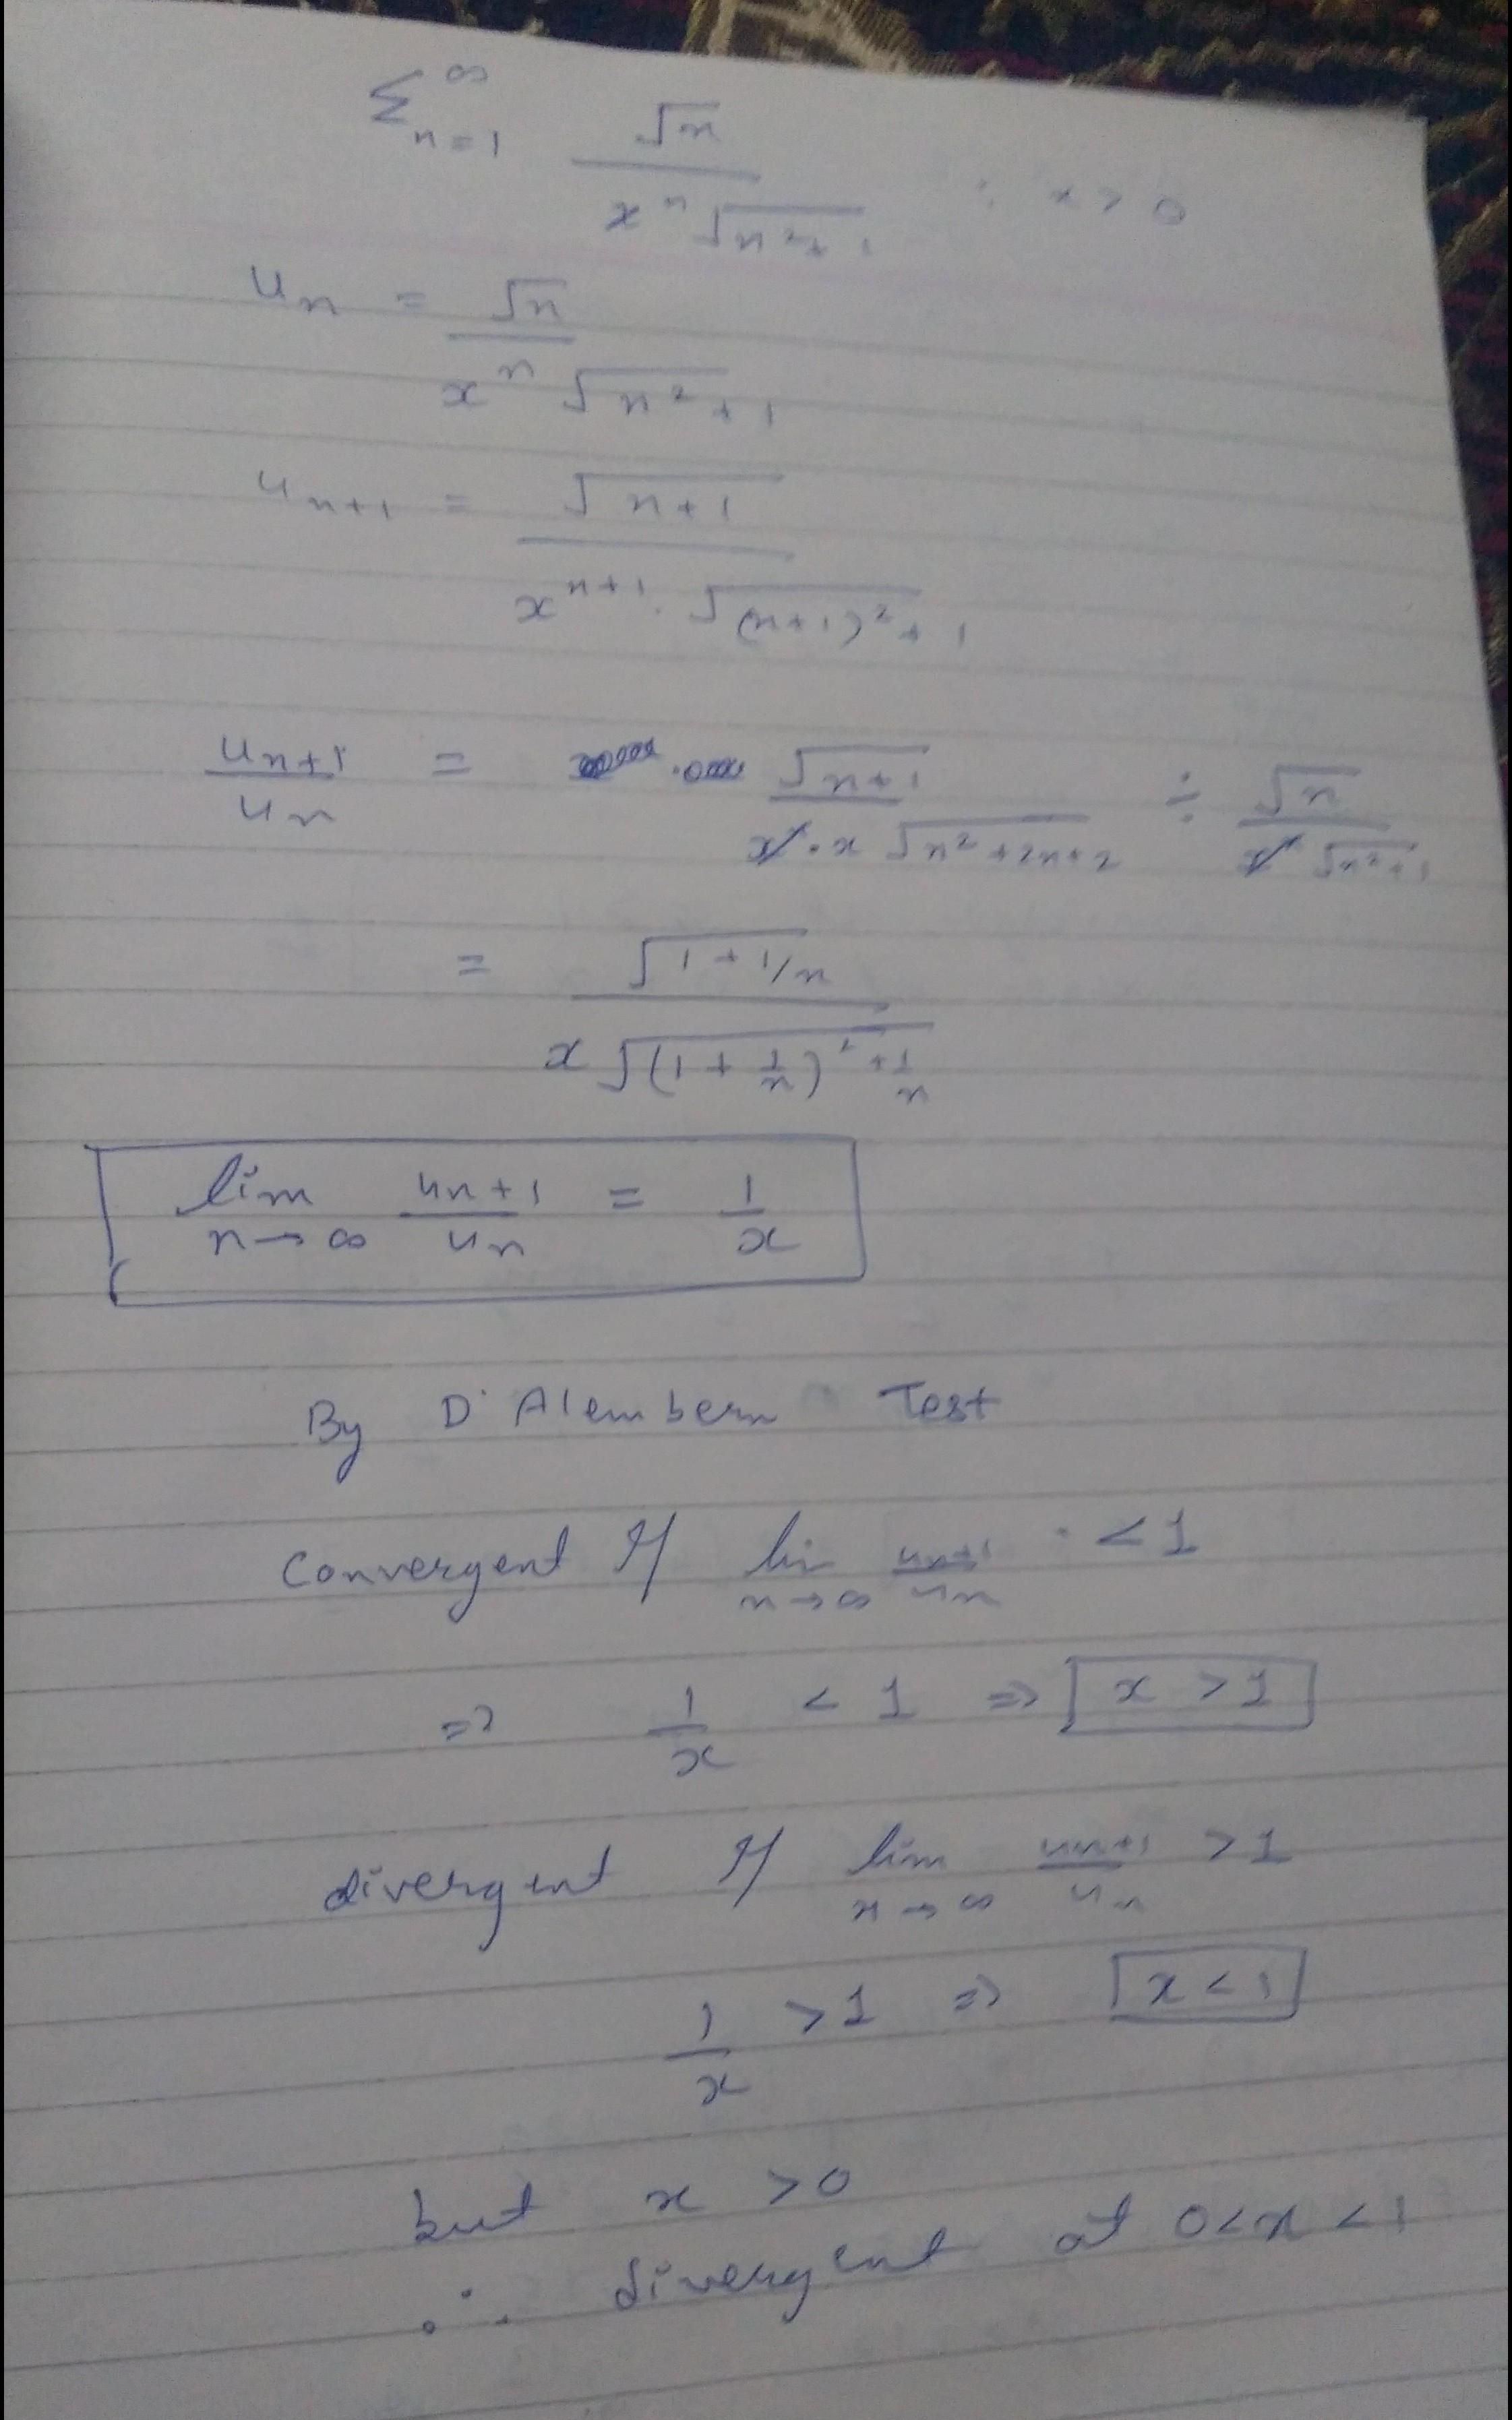 ∑_{n=1}^{∞} √n / (x^n √(n²+1)) : x > 0
u_n = √n / (x^n √(n²+1))
u_{n+1} = √(n+1) / (x^{n+1} · √((n+1)²+1))
u_{n+1}/u_n = √(n+1) / (x^n · x √(n²+2n+2)) ÷ √n / (x^n √(n²+1))
= √(1+1/n) / (x √((1+1/n)² + 1/n))
lim_{n→∞} u_{n+1}/u_n = 1/x
By D'Alembern Test
Convergent If lim_{n→∞} u_{n+1}/u_n < 1
=> 1/x < 1 => x > 1
divergent If lim_{n→∞} u_{n+1}/u_n > 1
1/x > 1 => x < 1
but x > 0
∴ divergent at 0<x<1